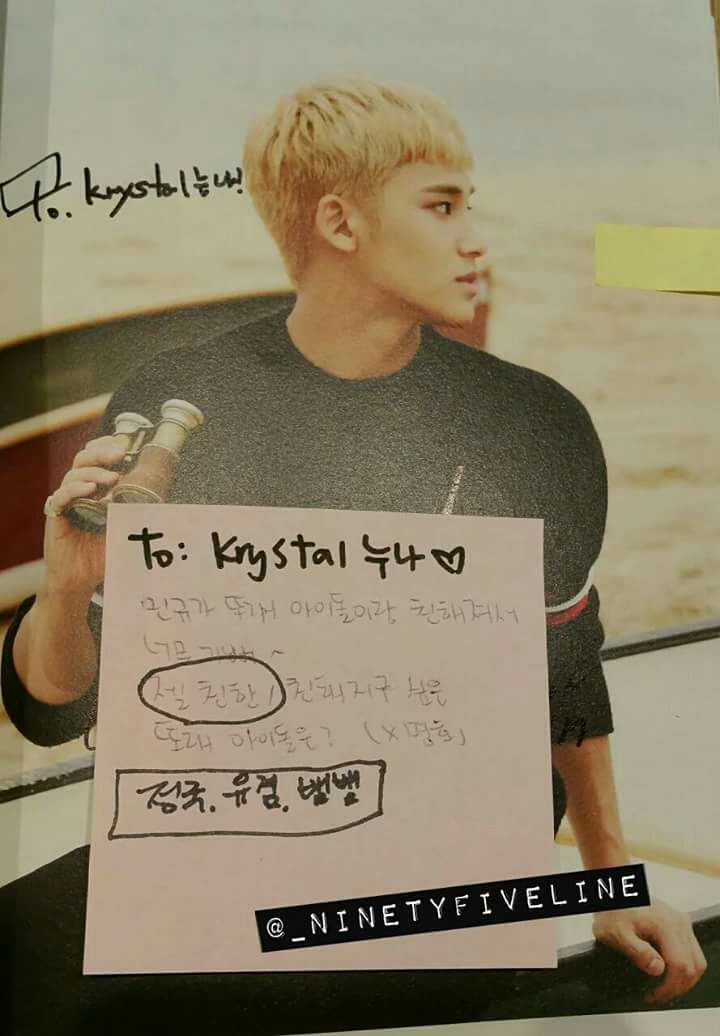 To. krystal누나!
To: Krystal 누나♡
민규가 또래 아이돌이랑 친해져서
너무 기뻐~
젤 친한/친해지구 싶은
또래 아이돌은? (X 명호)
정국. 유겸. 뱀뱀
@_NINETYFIVELINE